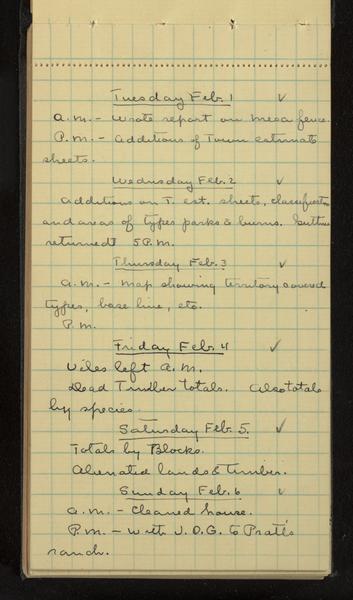 Tuesday Feb. 1 ✓
a.m. - Wrote report on Mesa fence.
P.M. - Additions of Town estimate
sheets.
Wednesday Feb. 2 ✓
Additions on T. est. sheets, classification
and areas of types parks & burns.
returned 5 P.M.
Thursday Feb. 3 ✓
a.m. - Map showing territory covered
types, base line, etc.
P.M.
Friday Feb. 4 ✓
Viles left a.m.
Dead Timber totals. Also totals
by species
Saturday Feb. 5. ✓
Totals by Blocks.
Alienated lands & timber.
Sunday Feb. 6 ✓
a.m. - Cleaned house.
P.M. - With J.O.G. to Pratt's
ranch.